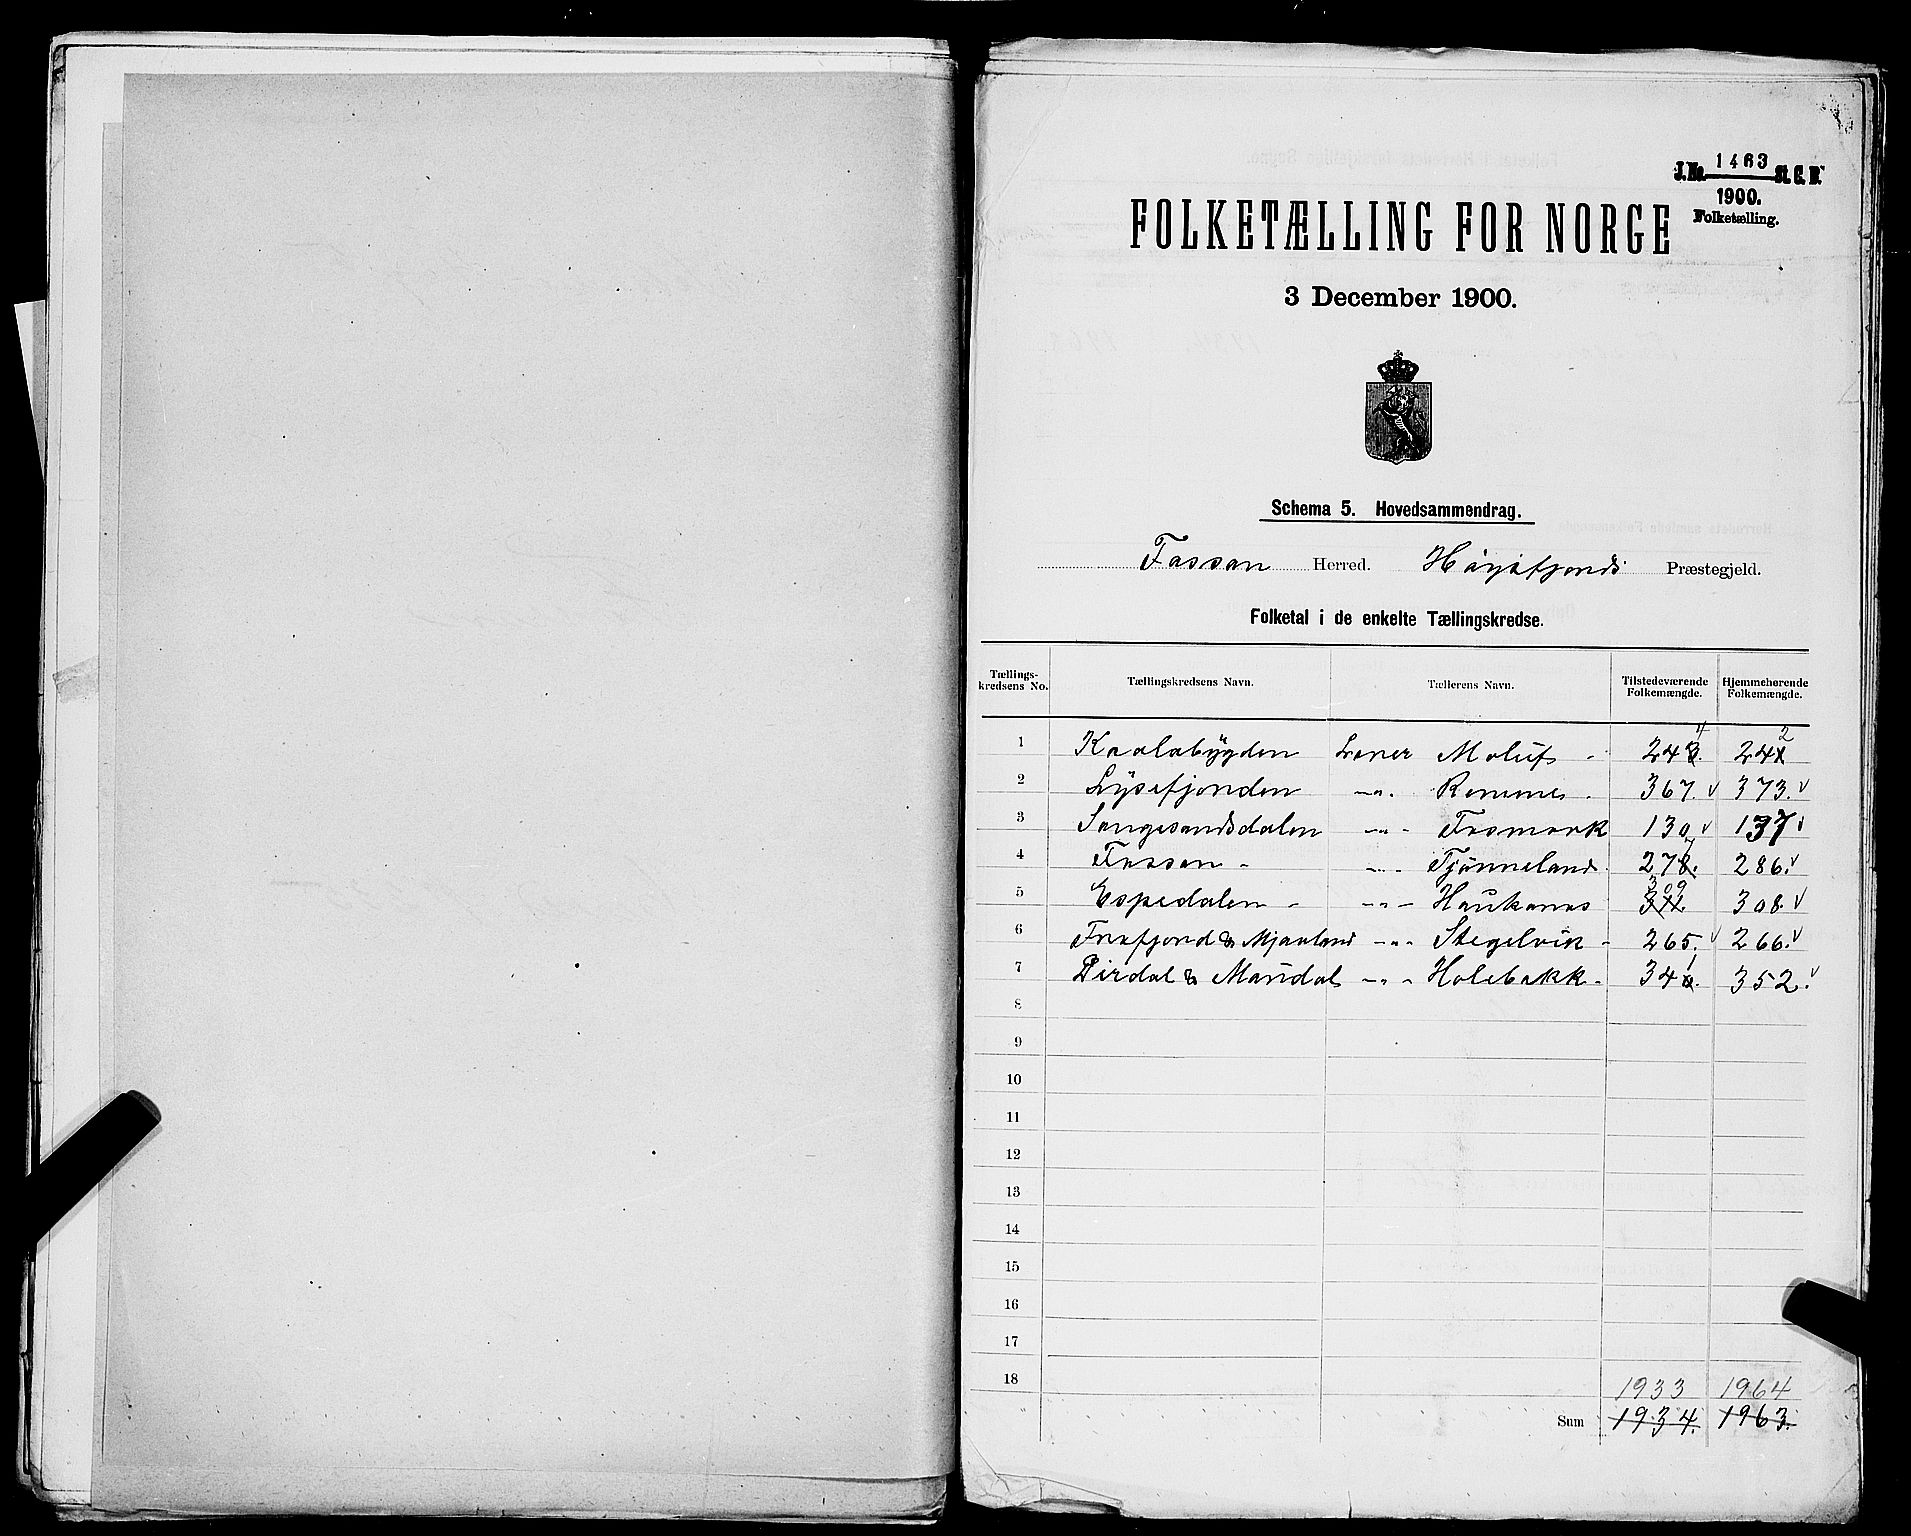 J.No. 1463 St. C. B.
1900.
Folketælling.
FOLKETÆLLING FOR NORGE
3 December 1900.
Schema 5. Hovedsammendrag.
Fossan Herred. Høgsfjords Præstegjeld.
Folketal i de enkelte Tællingskredse.
Tællings-kredsens No. Tællingskredsens Navn. Tællerens Navn. Tilstedeværende Folkemængde. Hjemmehørende Folkemængde.
4 2
1 Kaalabygden Lærer Moluf - 243. 241
2 Lysefjorden -"- Rommes - 367. v 373. v
3 Songesandsdalen -"- Fosmark 130 v 137 v
7
4 Fossan - -"- Tjønneland 278. 286. v
309
5 Espedalen - -"- Haukanes 311. 308. v
6 Frafjord & Mjaaland -"- Stegelvik - 265. v 266. v
1
7 Dirdal & Maudal -"- Holebakk - 340. 352. v
8
9
10
11
12
13
14
15
16
17
18
1933 1964
Sum 1934. 1963.